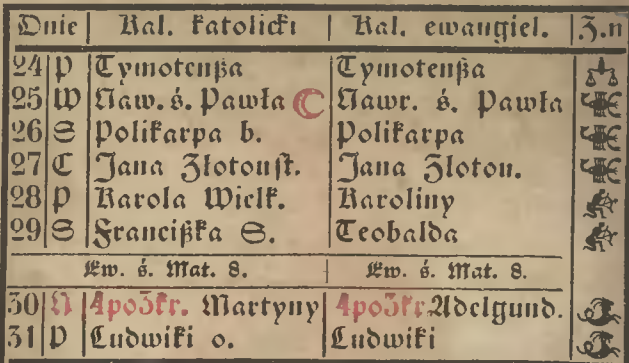 Dnie | Kal. katolicki | Kal. ewangiel. | Z.n
24 P Tymoteußa Tymoteußa
25 W Naw. ś. Pawła Nawr. ś. Pawła
26 S Polikarpa b. Polikarpa
27 C Jana Złotoust. Jana Złotou.
28 P Karola Wielk. Karoliny
29 S Francißka S. Teobalda
Ew. ś. Mat. 8. Ew. ś. Mat. 8.
30 N 4po3kr. Martyny 4po3kr. Adelgund.
31 P Ludwiki o. Ludwiki